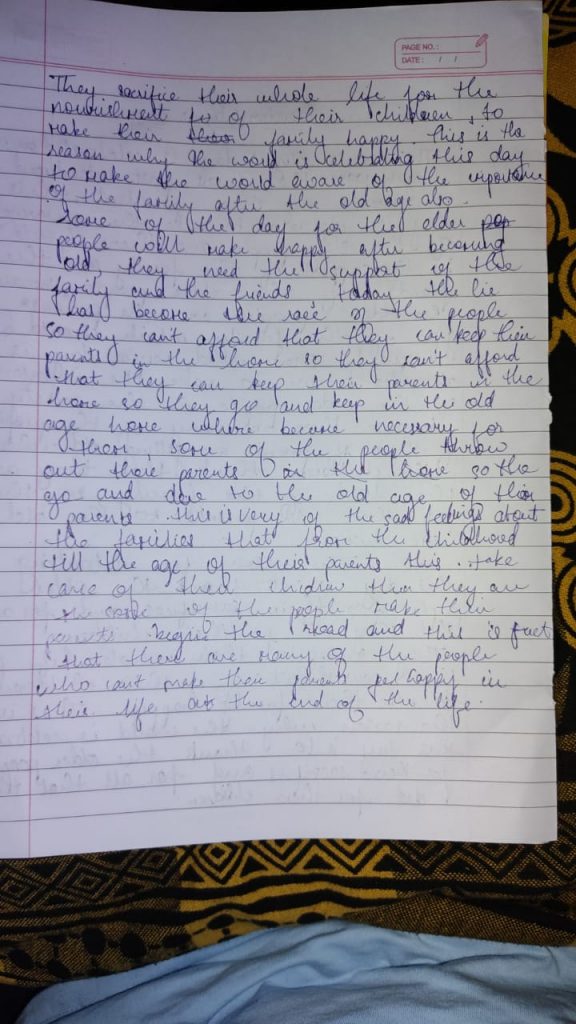 PAGE NO.:
DATE: / /
They sacrifice their whole life for the
nourishment fo of their children, to
make their their family happy. This is the
reason why the world is celebrating this day
to make the world aware of the importance
of the family after the old age also.
Some of the day for the elder pop
people will make happy after becoming
old, they need the support of the
family and the friends today the lie
has become the race of the people
so they can't afford that they can keep their
parents in the home so they can't afford
that they can keep their parents in the
home so they go and keep in the old
age home where became necessary for
them, some of the people throw
out their parents in the home so the
go and due to the old age of their
parents this is very of the sad feelings about
the families that from the childhood
till the age of their parents this. take
care of their then they are
some of the people make their
parents begin the road and this is fact
that there are many of the people
who can't make their parents get happy in
their life at the end of the life.